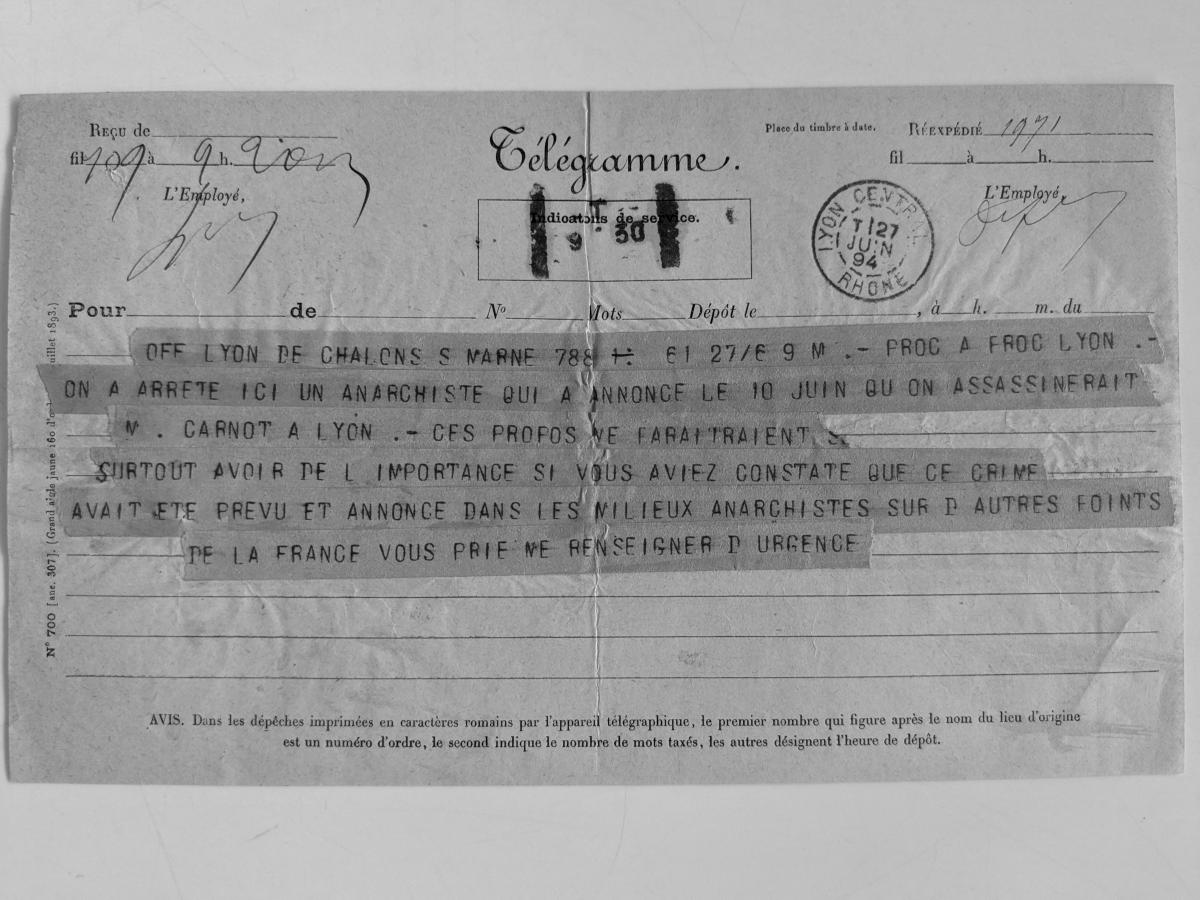 Reçu de
Télégramme.
Place du timbre à date.
Réexpédié 1971
fil 109 à 9 h.
fil à h.
L'Employé,
L'Employé,
Indications de service.
9 30
LYON CENTRAL
27
JUIN
94
RHONE
Pour de No Mots Dépôt le , à h. m. du
OFF LYON DE CHALONS S MARNE 788 61 27/6 9 M .- PROC A PROC LYON .-
ON A ARRETE ICI UN ANARCHISTE QUI A ANNONCE LE 10 JUIN QU ON ASSASSINERAIT
M . CARNOT A LYON .- CES PROPOS ME PARAITRAIENT
SURTOUT AVOIR DE L IMPORTANCE SI VOUS AVIEZ CONSTATE QUE CE CRIME
AVAIT ETE PREVU ET ANNONCE DANS LES MILIEUX ANARCHISTES SUR D AUTRES POINTS
DE LA FRANCE VOUS PRIE ME RENSEIGNER D URGENCE
AVIS. Dans les dépêches imprimées en caractères romains par l'appareil télégraphique, le premier nombre qui figure après le nom du lieu d'origine
est un numéro d'ordre, le second indique le nombre de mots taxés, les autres désignent l'heure de dépôt.
N° 700 [anc. 307]. (Grand aigle jaune 160 juillet 1893.)